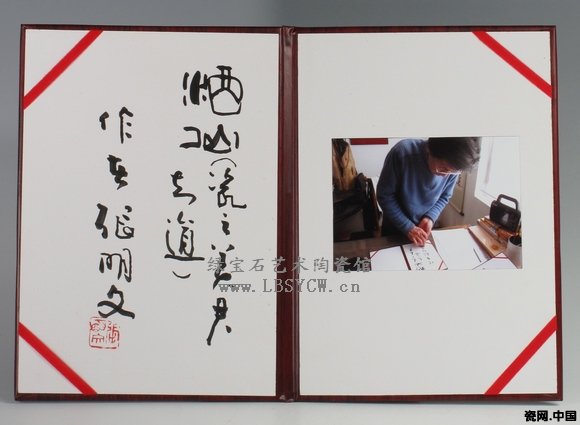 酒仙(瓷之
道)
作者 张明文
绿宝石艺术陶瓷馆
www.LBSYCW.cn
瓷网.中国